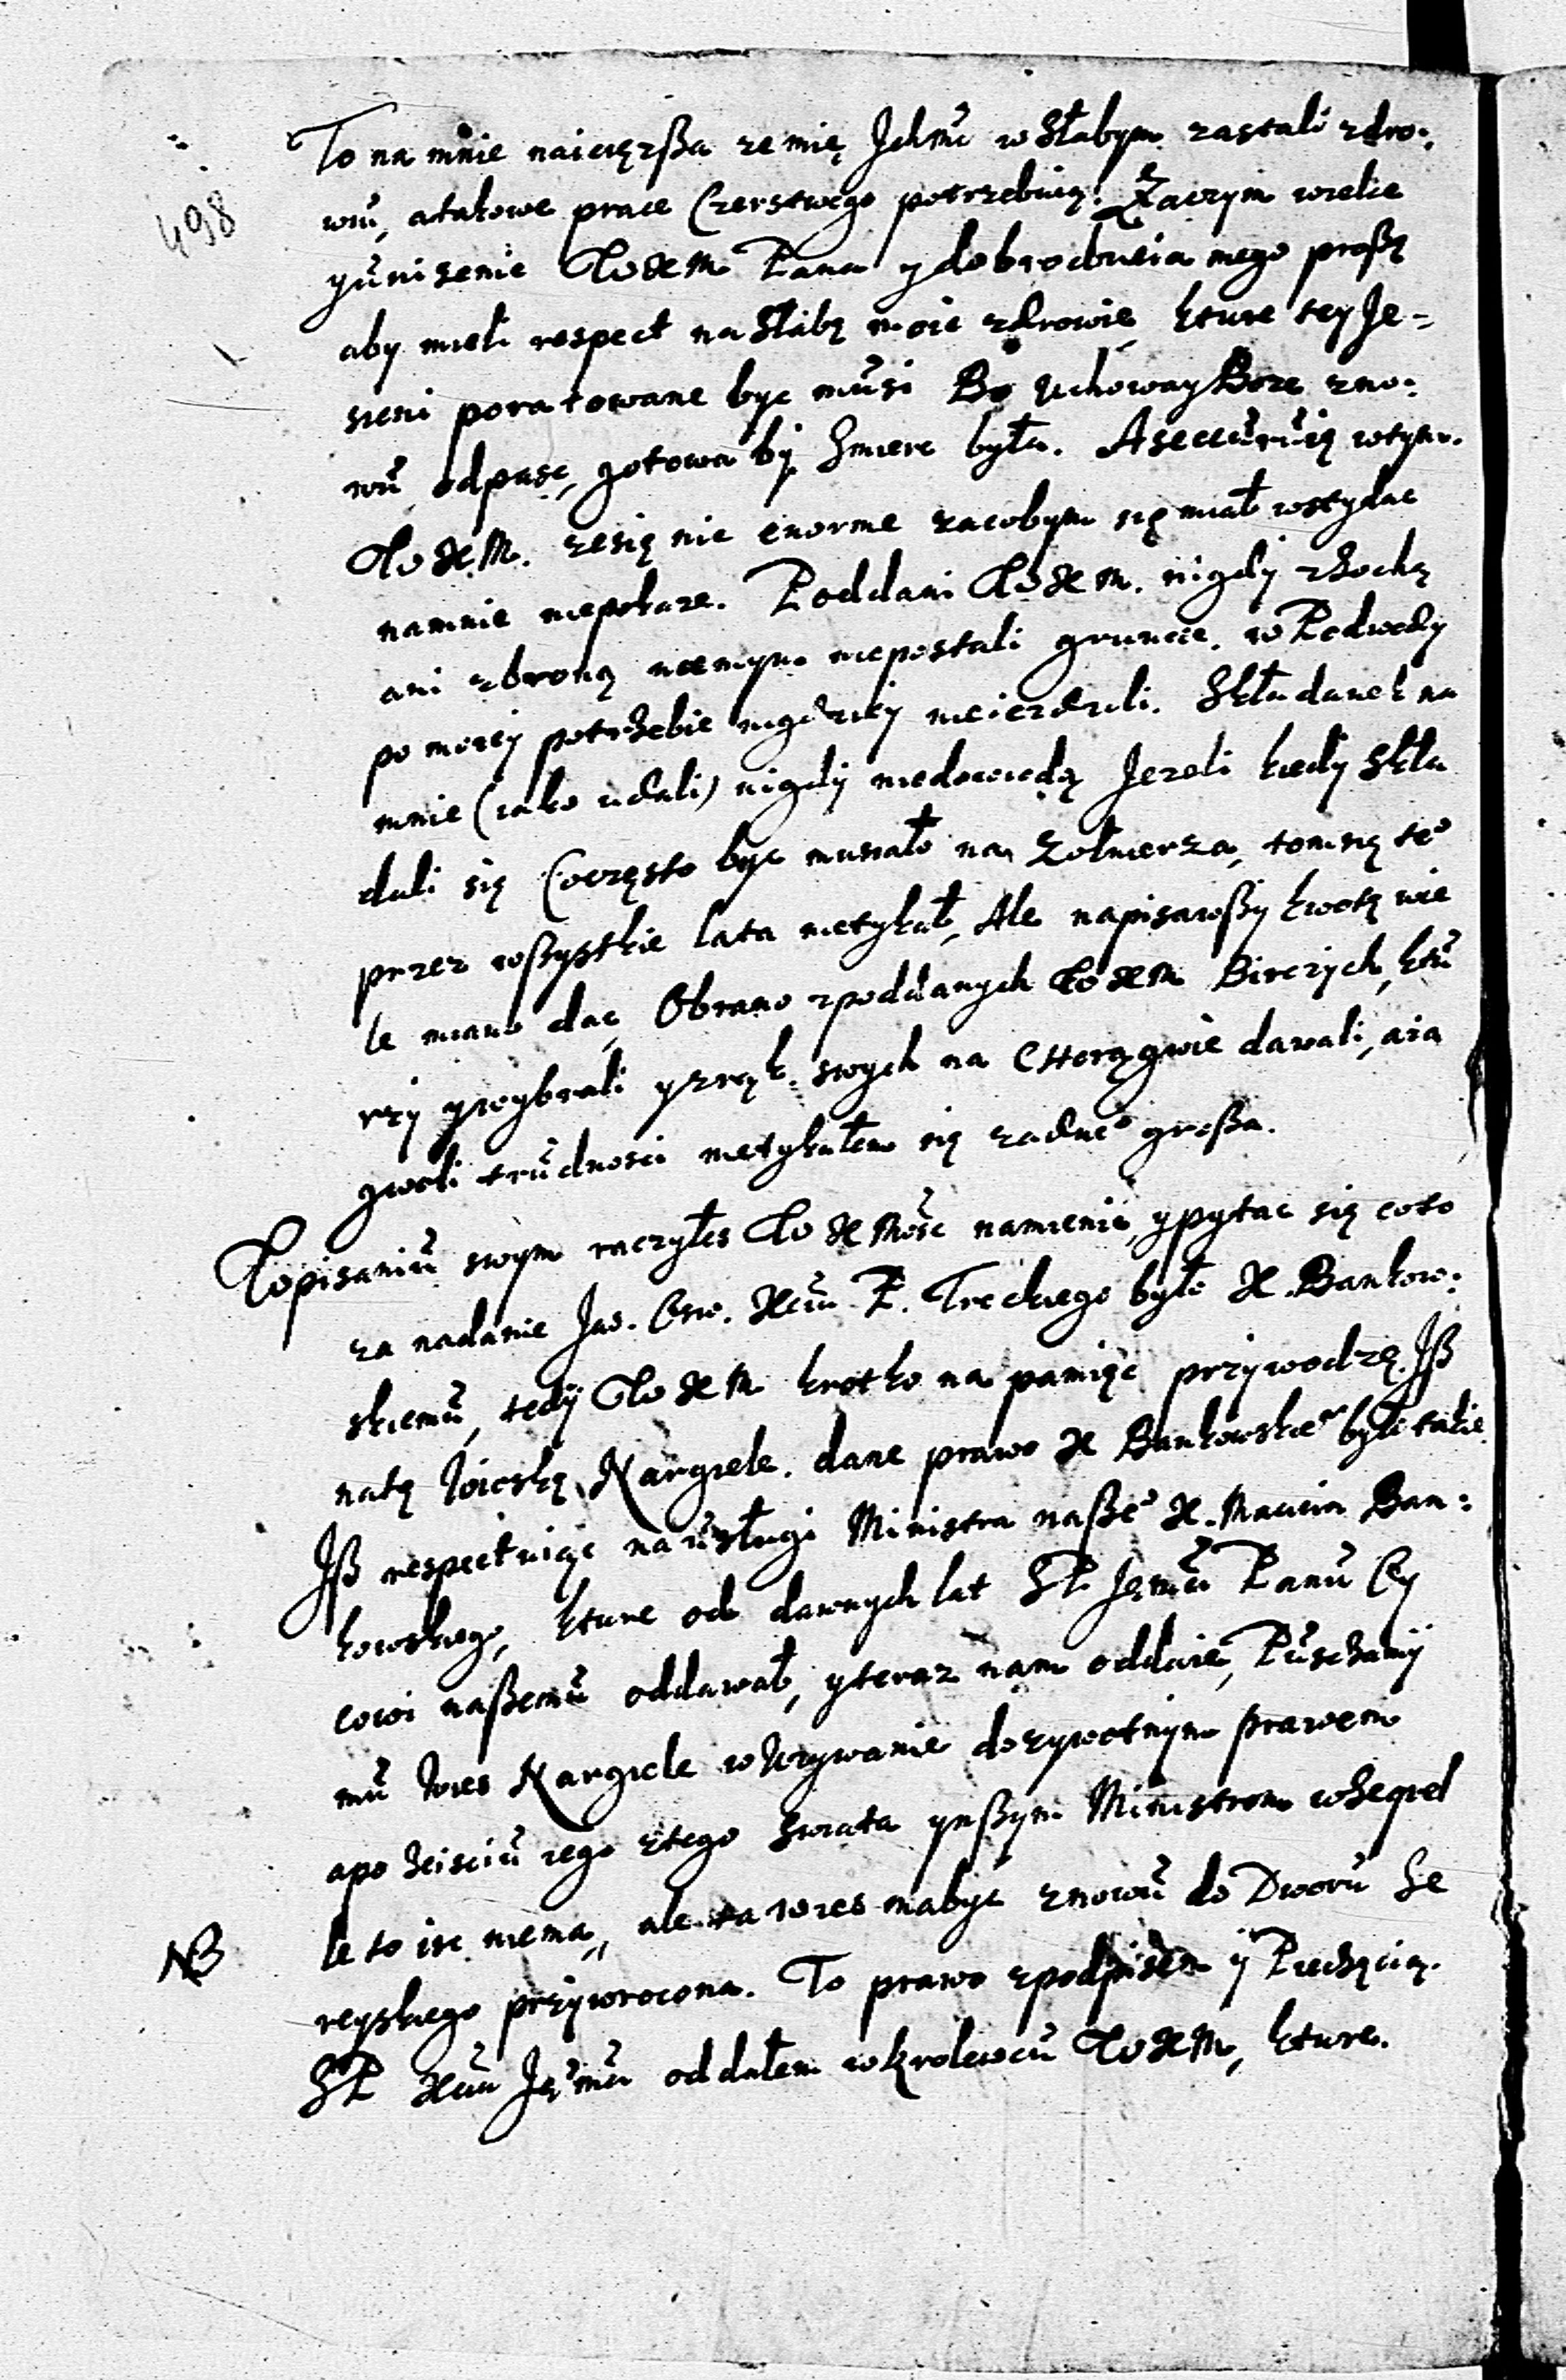 To na mnie naicięzßa ze mię Jchmć w słabym zastali zdro:
wiu, a takowe prace Czerstwego potrzebuią. Zaczym wielce
y uniżenie WXM Pana y dobrodzieia mego proßę
aby mieli respect na słabę moie zdrowie, kture tey Je-
sieni poratowane byc musi Bo uchoway Boze zno:
wu odpasc, gotowa by Smierc była. Asecuruię w tym
WXM. ze się nic enorme za cobym się miał wstydac
na mnie niepokaze. Poddani WXM. nigdy z sochą
ani z broną na mym niepostali gruncie. w Podwody
po moiey potrzebie nigdziey nieiezdzili. Składanek na
mnie (iako udali) nigdy niedowiodą Jezeli kiedy skła
dali się (co często byc musiało na zołnierza, tom się te°
przez wßystkie lata nietykał, Ale napisawßy kwotę wie
le miano dac, Obrano z poddanych WXM Birczych, ktu
rzy y wybrali y z rąk swych na Chorągwie dawali, a ia
gwoli trudnosci nietykałem się zadne° großa.
W pisaniu swym raczyłes WXMosc namienic, y pytac się co to
za nadanie Jas. Osw. Xcia P. Trockiego było X. Bankow:
skiemu, tedy WXM krotko na pamięc przywodzę. Jß
na tę Wioskę Nargiele. dane prawo X Bankowskie° było takie
Jß respectuiąc na usługi Ministra naße° X. Macieia Ban:
kowskiego, kture od dawnych lat SP Jemu Panu Oy
cowi naßemu oddawał, y teraz nam oddaie, Pusczamy
mu Wies Nargiele w Uzywanie dozywotnym prawem
a po zeisciu iego z tego Swiata ynßym Ministrom w Seqvel
le to isc niema, ale ta wies ma byc znowu do Dworu Se
NB
reyskiego przywrocona. To prawo z podpisem y Pieczęcią
SP Xcia Je°mci oddałem w Krolewcu WXM, kture.
498